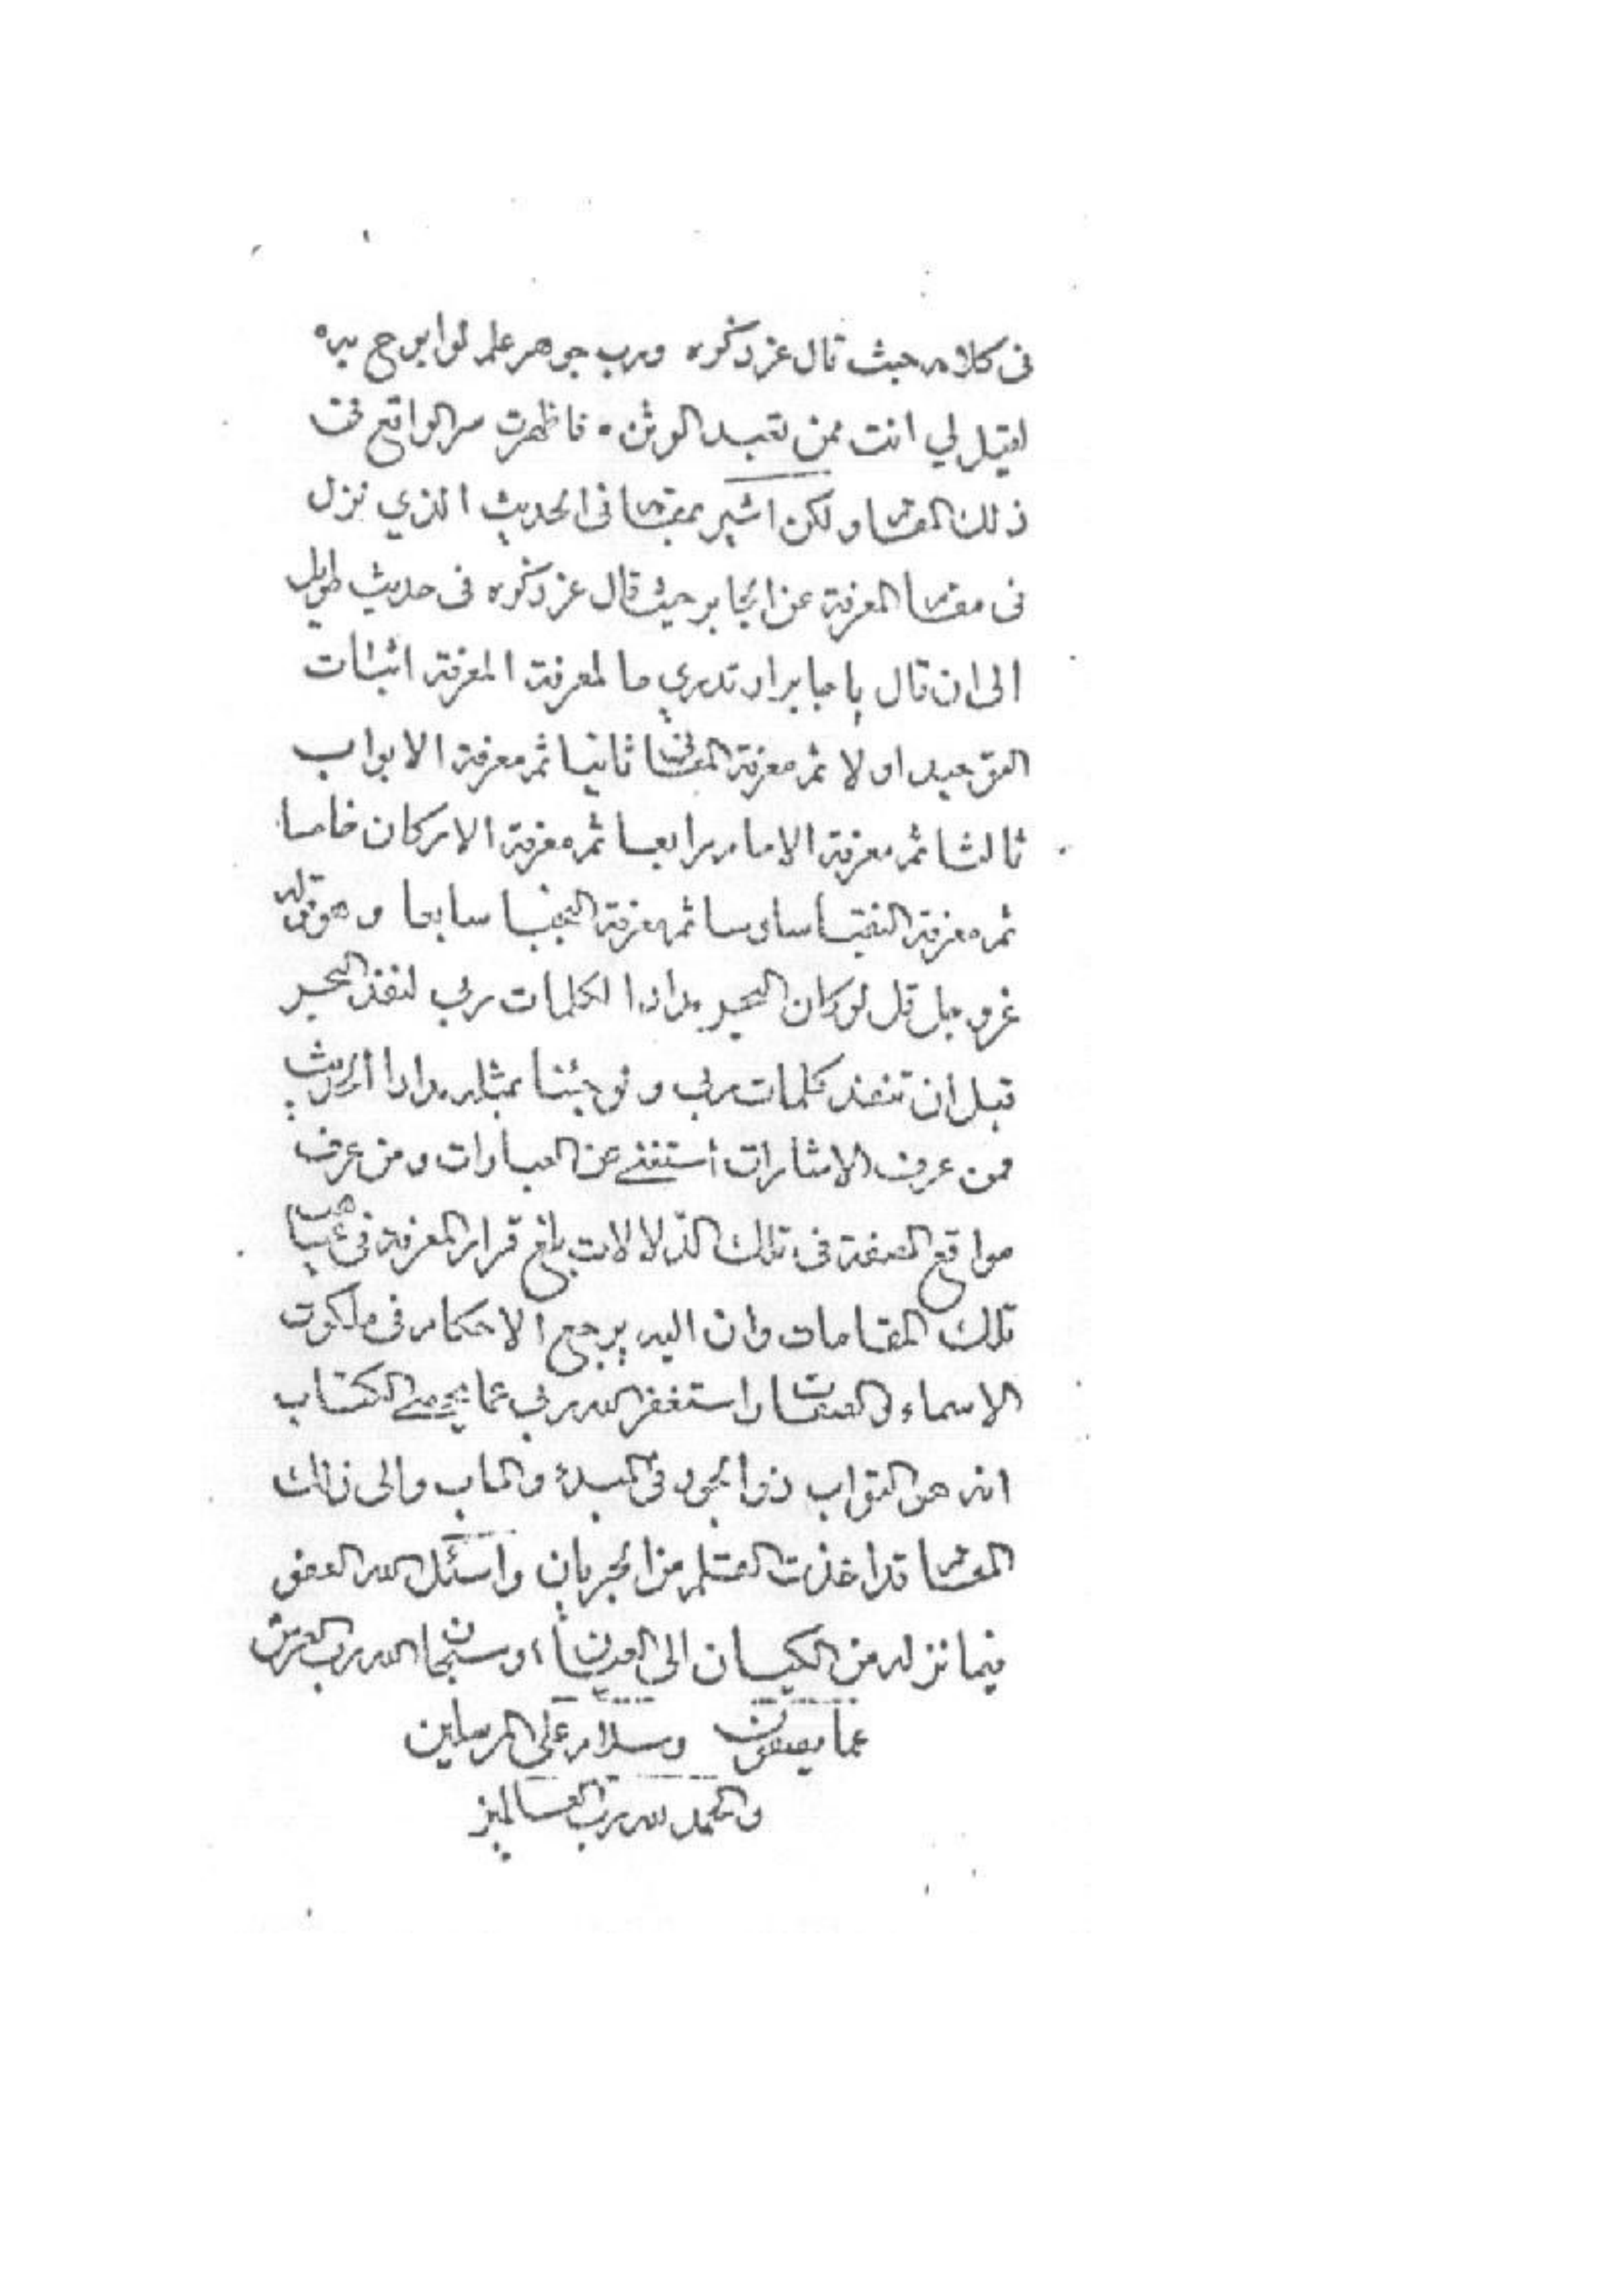 فى كلامه حيث قال عز ذكره ورب جوهر علم لو ابوح به
لقيل لي انت ممن تعبد الوثن فاظهرت سر الواقع فى
ذلك المقام ولكن اشير بمقام فى الحديث الذي نزل
فى مقام المعرفة عن الجابر حيث قال عز ذكره فى حديث طويل
الى ان قال يا جابر او تدري ما لمعرفة المعرفة اثبات
التوحيد اولا ثم معرفة المعانى ثانيا ثم معرفة الابواب
ثالثا ثم معرفة الامام رابعا ثم معرفة الاركان خامسا
ثم معرفة النقبا سادسا ثم معرفة النجبا سابعا وهو قوله
عز وجل قل لو كان البحر مدادا لكلمات ربي لنفذ البحر
قبل أن تنفد كلمات ربي ولو جئنا بمثله مدادا الحديث
فمن عرف الاشارات أستغنى عن العبارات ومن عرف
مواقع الصفة فى تلك الدلالات بلغ قرار المعرفة فى
تلك المقامات وان اليه يرجع الاحكام فى ملكوت
الاسماء والصفات واستغفر الله ربي عما يحصى الكتاب
انه هو التواب ذو الجود فى المبدء والماب والى ذلك
المقام قد اخذت القلم من الجريان واسئل الله العفو
فيما نزله من الكيان الى العيان وسبحان الله رب العرش
عما يصفون وسلام على المرسلين
والحمد لله رب العالمين